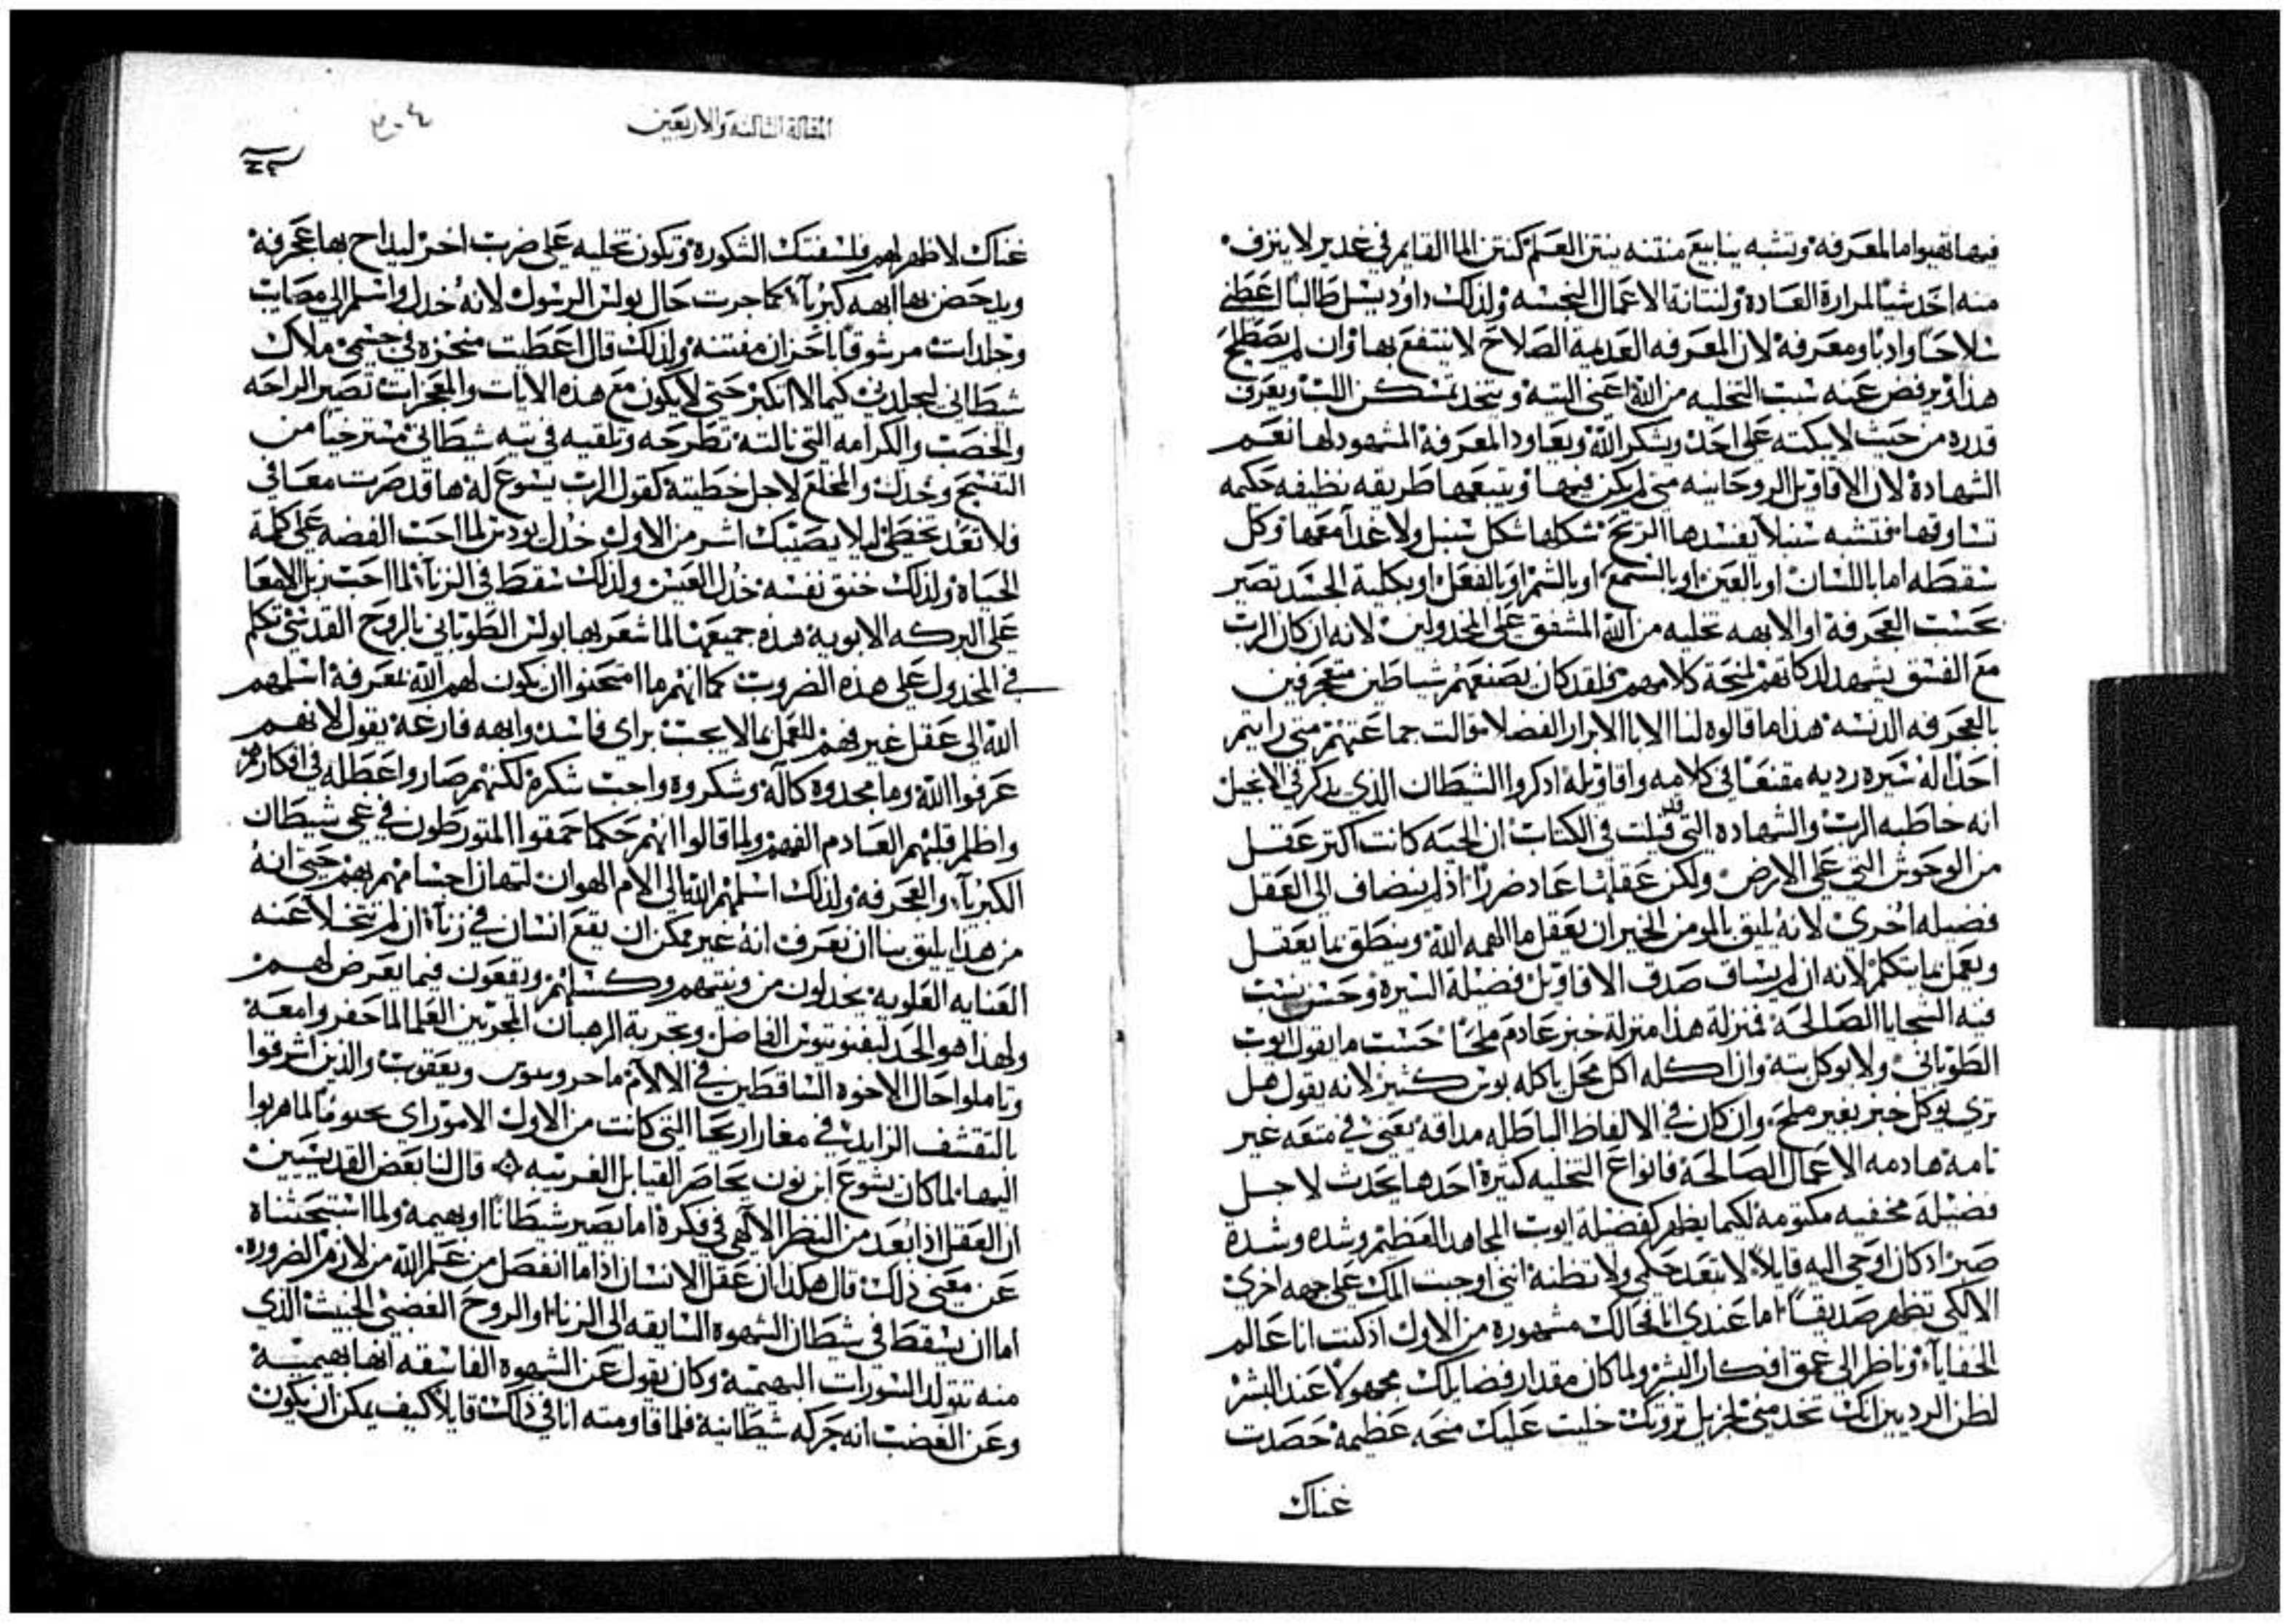 فيها تقيوا ما المعرفه وتشبه ينابيع منتنه ينتن العلم كنتن الما القايم في غدير لا ينزف
منه احد شيا لمرارة العادة ولنتانة الاعمال النجسه ولذلك داوود يسل طالبًا اعطني
سلاحًا وادبًا ومعرفه لان المعرفه العديمة الصلاح لا ينتفع بها وان لم يصطلح
هذا ويرفض عنه سبب التخليه من الله اعني التيه ويتخد تمسكن اللب ويعرف
قدره من حيث لا يبكته على احد ويشكر الله ويعاود المعرفة المشهود لها نعم
الشهادة لان الاقاويل الروحانيه متى لم يكن فيها ويتبعها طريقه نظيفه حكيمه
تساوقها فتشبه سنبلًا يفسدها الريح شكلها شكل سنبل ولا غدا معها وكل
سقطه اما باللسان او بالعين او بالسمع او بالشم او بالفعل او بكلية الجسد تصير
بحسب العجرفة او الابهه تخليه من الله المشفق على المخدولين لانه ان كان الرب
مع الفسق يشهد لدكاتهم لمنحة كلامهم فلقد كان يصنعهم شياطين متعجرفين
بالعجرفه الدنسه هذا ما قالوه لنا الابا الابرار الفضلا وقالت جماعتهم متى رايتم
احدًا له سيره رديه مقنعًا في كلامه واقاويله ادكروا الشيطان الذي يدكر في الانجيل
انه خاطبه الرب والشهاده التي قد قيلت في الكتاب ان الحيه كانت اكتر عقل
من الوحوش التي على الارض ولكن عقلها عاد ضررًا اذ لم ينضاف الى العقل
فضيله اخرى لانه يليق بالمومن الخير ان يعقل ما الهمه الله وينطق بما يعقل
ويعمل بما يتكلم لانه ان لم يساق صدق الاقاويل فضيلة السيرة وحسن نسب
فيه السجايا الصالحة فمنزلة هذا منزلة خبز عادم ملحًا حسب ما يقول ايوب
الطوباني ولا يوكل بته وان اكله اكل محل ياكله بوس كثير لانه يقول هل
ترى يوكل خبز بغير ملح وان كان في الالفاظ الباطله مداقه يعني في متعه غير
نامة هادمه الاعمال الصالحة فانواع التخليه كثيرة احدها يحدث لاجل
فضيلة مخفيه مكتومة لكيما يظهر كفضيلة ايوب المجاهد العظيم وشده وشدة
صبر اد كان اوحى اليه قايلًا لا تبعد حكمي ولا تظنه انني اوجبت الك على جهه اخرى
الا لكي تظهر صديقًا اما عندي انا فحالك مشهوره من الاول اد كنت انا عالم
الخفاياء وناظر الى عمق افكار البشر ولما كان مقدار فضايلك مجهولًا عند البشر
لظن الرديين انك تخدمني لجزيل ثروتك خليت عليك محه عظيمة حصدت
غناك
المقالة الثالثة والاربعين
غناك لاظهر لهم فلسفتك الشكورة وتكون تخليه على ضرب اخر ليداح بها عجرفة
ويدحض بها ابهه كبرياء كما جرت حال بولس الرسول لانه خدل واسلم الى مصايب
وجلدات مرشوقًا باحزان مفتنه ولذلك قال اعطت منخزه في جسمي ملاك
شيطاني ليجلدني كيما لا اتكبر حتى لا يكون مع هذه الايات والمعجزات تصير الراحه
والخصب والكرامه التي نالته تطرحه وتلقيه في تيه شيطاني مسترخيًا من
التفتيح وخدل والمخلع لاجل خطيته كقول الرب يسوع له ها قد صرت معافي
فلا تعد تخطي ليلا يصيبك اشر من الاول خدل يودس لما احب الفضه على كلمة
الحياة ولذلك خنق نفسه خدل العيس ولذلك سقط في الزناء لما احب زبل الامعا
على البركه الابوية هذه جميعها لما شعر بها بولس الطوباني بالروح القدسي تكلم
في المخدول على هذه الضروب كما انهم ما امتحنوا ان يكون لهم الله بمعرفة اسلمهم
الله الى عقل غير فهم للعمل بما لا يجب براي فاسد وابهه فارغة يقول لانهم
عرفوا الله وما مجدوه كاله وشكروه واجب شكرة لكنهم صاروا عطلة في افكارهم
واظلم قلبهم العادم الفهم ولما قالوا انهم حكما حمقوا المتورطون في عي شيطان
الكبرياء والعجرفه ولذلك اسلمهم الله الى الام الهوان لتهان اجسامهم بهم حتى انه
من هذا يليق بنا ان نعرف انه غير ممكن ان يقع انسان في زناء ان لم تتخلا عنه
العنايه العلويه يخدلون من ونيتهم وكسلهم ويقعون فيما يعرض لهم
ولهذا هو الحد ليفنوتيوس الفاضل وتجربة الرهبان المجربين العلما لما حضروا معة
وتاملوا حال الاخوه الساقطين في الالام ويعقوب والذين اشرقوا
بالتقشف الزايد في مغار اريحا التي كانت من الاول الامورراي لما هربوا
اليها لما كان يشوع ابن نون يحاصر القبايل الغريبه ۞ قال لنا بعض القديسين
ان العقل اذا بعد من النظر الالهي في فكرة اما يصير شيطانًا او بهيمه ولما استبحثناه
عن معنى ذلك قال هكذا ان عقل الانسان اذا ما انفصل من علم الله من لازم الضروره
اما ان يسقط في شيطان الشهوه السايقه الى الزناء او الروح الغضبي الخبيث الذي
منه تتولد السورات البهيميه وكان يقول عن الشهوه الفاسقه انها بهيميه
وعن الغضب انه حركه شيطانية فلما قاومته انا في ذلك قايلًا كيف يمكن ان يكون